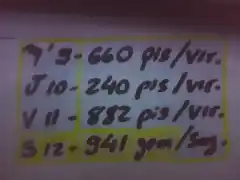 M'9-660 pis/vir.
J 10-240 pis/vir.
V 11-882 pis/vir.
S 12-941 gom/Sag.